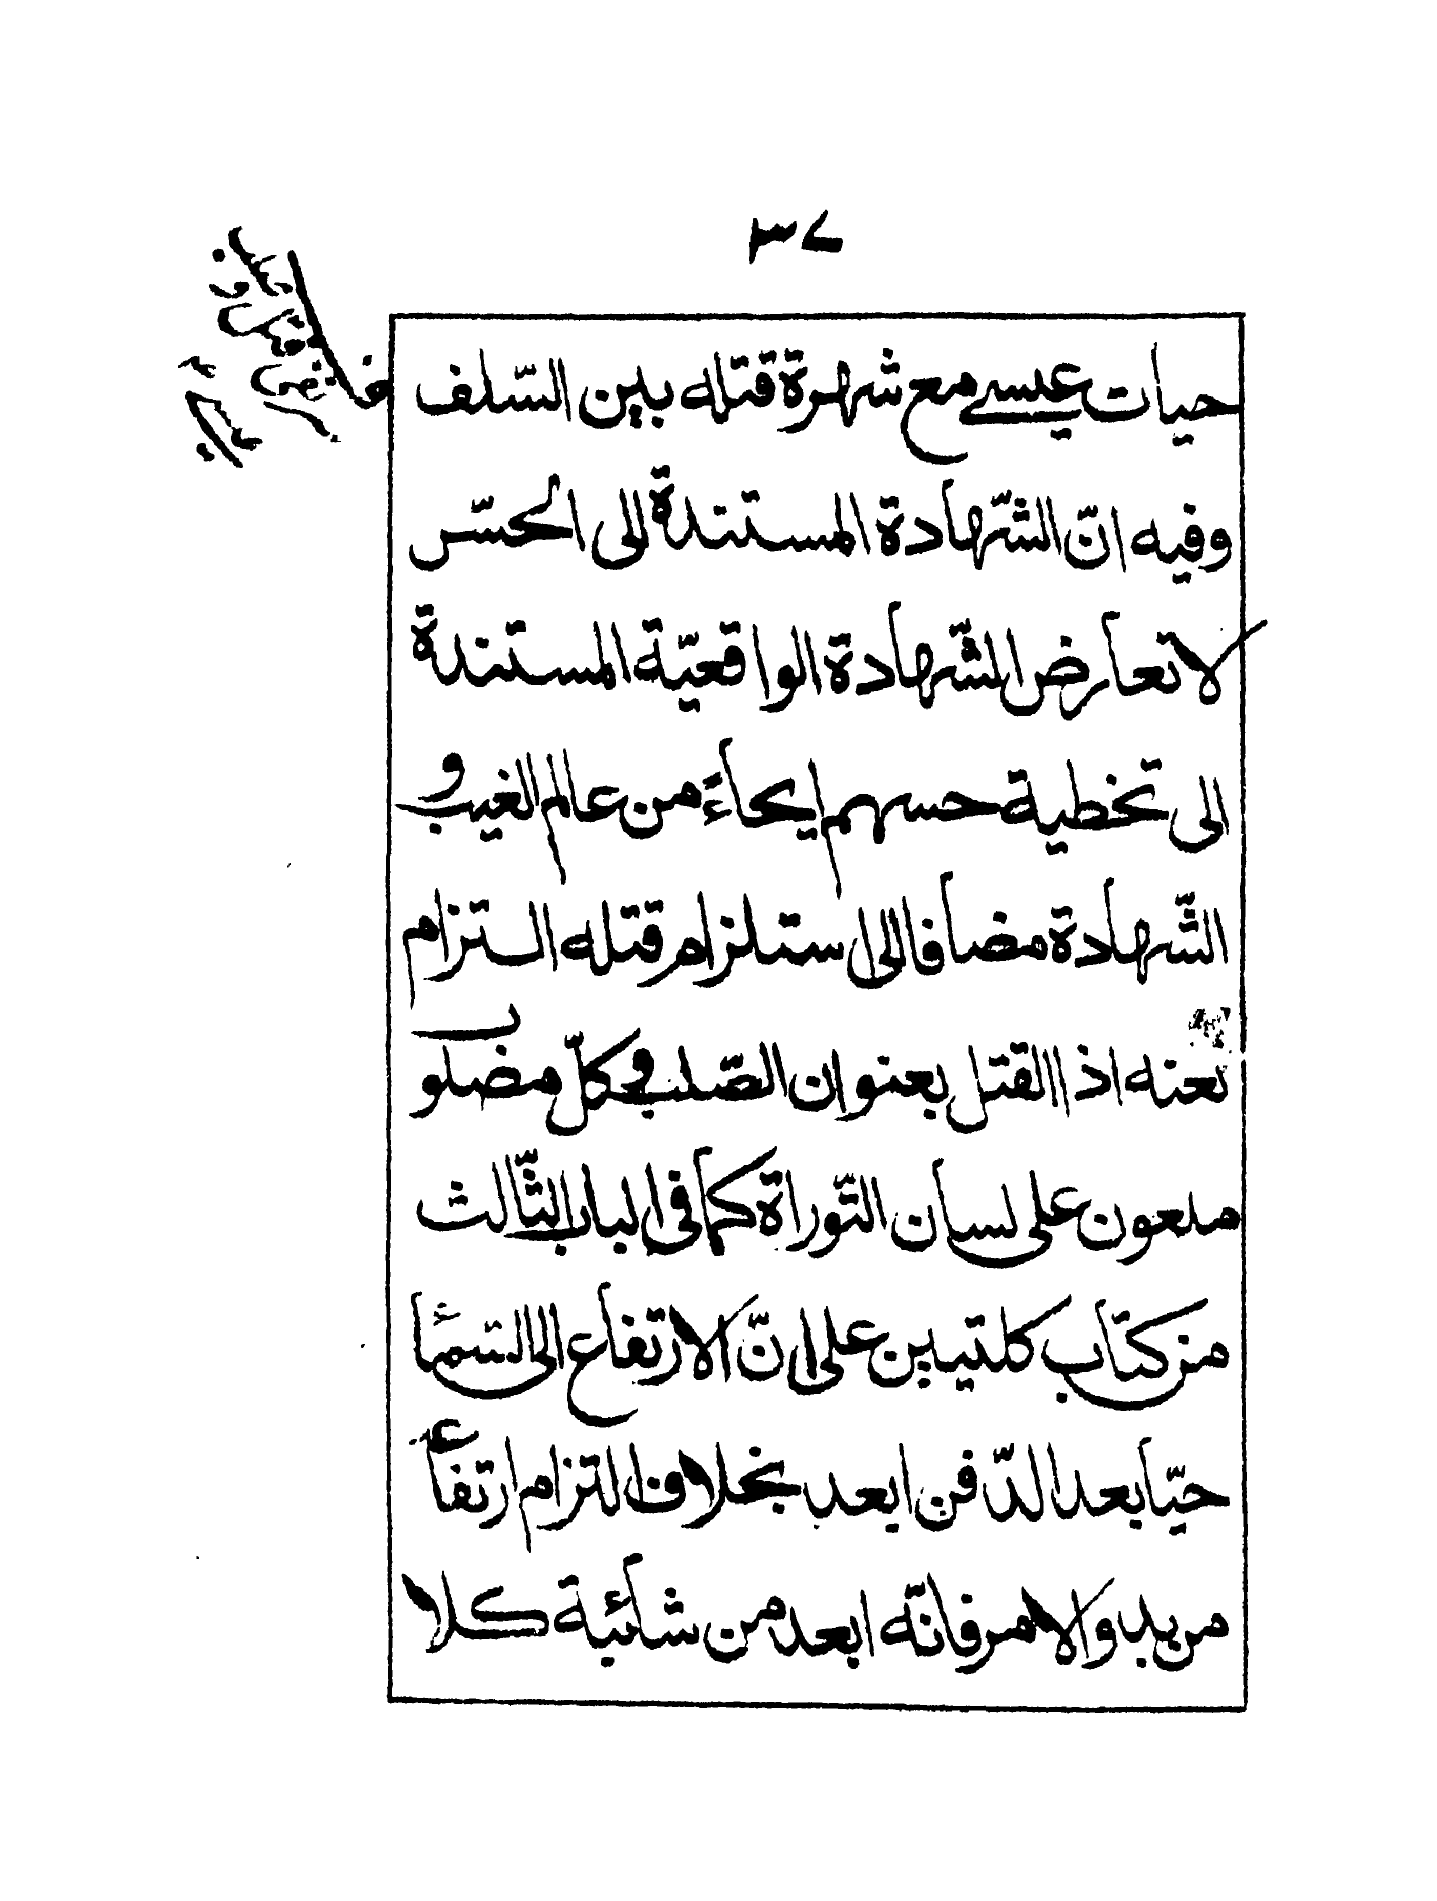 ٣٧
حيات عيسى مع شهرة قتله بين السّلف
وفيه انّ الشّهادة المستندة الى الحسّ
لا تعارض الشّهادة الواقعيّة المستندة
الى تخطية حسهم ايحاءً من عالم الغيب و
الشّهادة مضافا الى ستلزام قتله التزام
لعنه اذ القتل بعنوان الصّلب وكلّ مضلوب
ملعون على لسان التّوراة كما فى الباب الثّالث
من كتاب كلتيين على انّ الارتفاع الى السّمآء
حيّا بعد الدّفن ابعد بخلاف التزام ارتفاعه
من بدو الامر فانّه ابعد من شائبة كلا